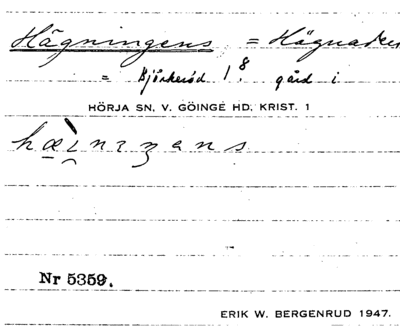 Hägningens = Hägnaden
= Björkeröd 1⁸. gård i
HÖRJA SN. V. GÖINGE HD. KRIST. 1
Nr 5359.
ERIK W. BERGENRUD 1947.